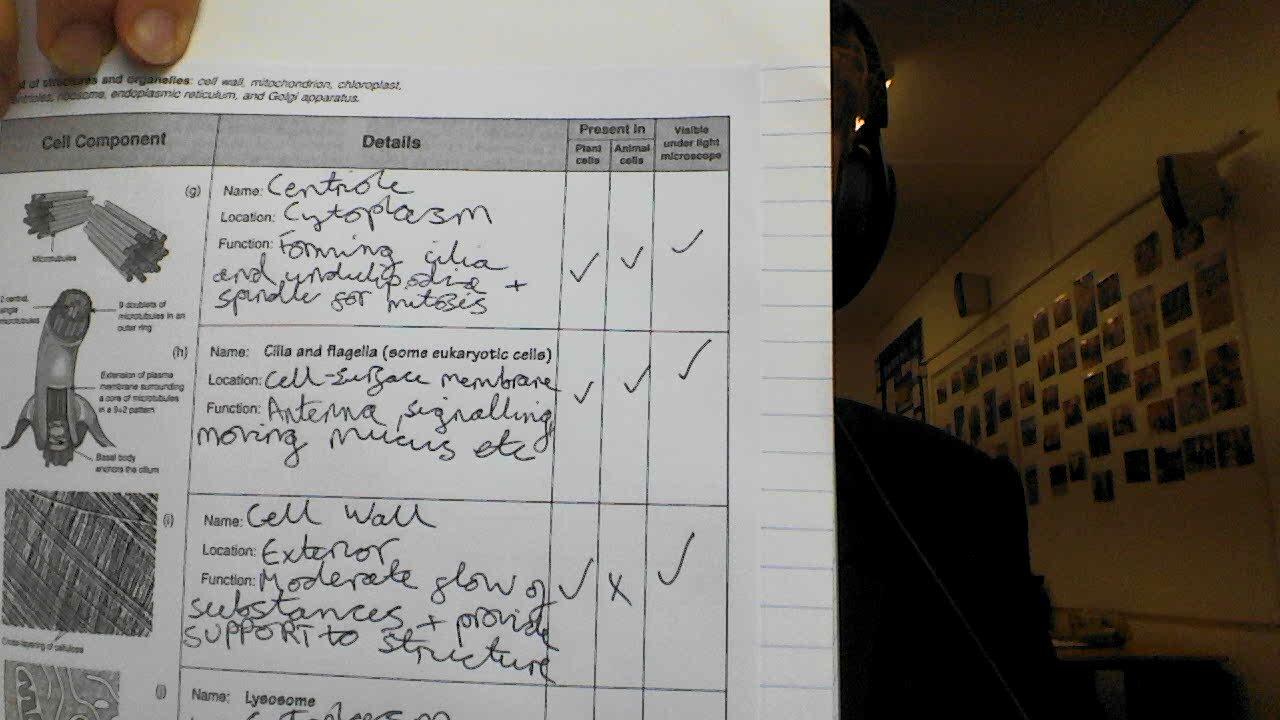 of structures and organelles: cell wall, mitochondrion, chloroplast,
ribosome, endoplasmic reticulum, and Golgi apparatus.
Cell Component
Details
Present in
Plant cells
Animal cells
Visible under light microscope
(g)
Name: Centriole
Location: Cytoplasm
Function: Forming cilia
and undulipodia +
spindle for mitosis
Microtubules
2 central,
single
microtubules
9 doublets of
microtubules in an
outer ring
Extension of plasma
membrane surrounding
a core of microtubules
in a 9+2 pattern
Basal body
anchors the cilium
(h)
Name: Cilia and flagella (some eukaryotic cells)
Location: Cell-surface membrane
Function: Antenna, signalling,
moving mucus etc
(i)
Name: Cell Wall
Location: Exterior
Function: Moderate flow of
substances + provide
SUPPORT to structure
Cross-layering of cellulose
(j)
Name: Lysosome
Cytoplasm